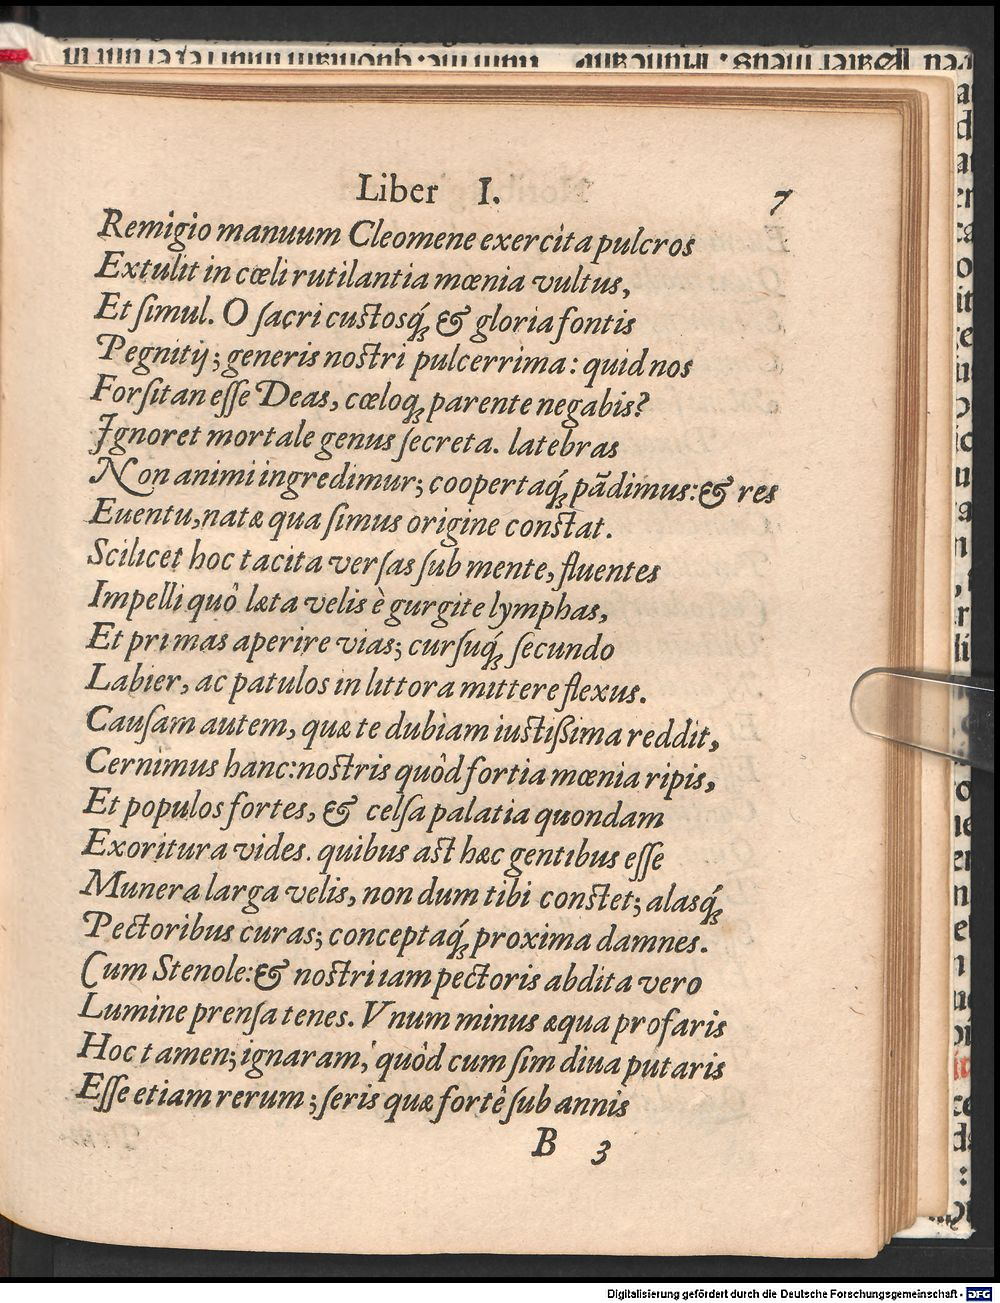 Liber I. 7
Remigio manuum Cleomene exercita pulcros
Extulit in cœli rutilantia mœnia vultus,
Et ſimul. O ſacri custosq́; & gloria fontis
Pegnitij; generis nostri pulcerrima: quid nos
Forſitan eſſe Deas, cœloq; parente negabis?
Ignoret mortale genus ſecreta. latebras
Non animi ingredimur; coopertaq́; pãdimus: & res
Euentu, natæ qua ſimus origine constat.
Scilicet hoc tacita verſas ſub mente, fluentes
Impelli quô læta velis è gurgite lymphas,
Et primas aperire vias; curſuq́; ſecundo
Labier, ac patulos in littora mittere flexus.
Cauſam autem, quæ te dubiam iustiſsima reddit,
Cernimus hanc: nostris quôd fortia mœnia ripis,
Et populos fortes, & celſa palatia quondam
Exoritura vides. quibus ast hæc gentibus eſſe
Munera larga velis, non dum tibi constet; alasq́;
Pectoribus curas; conceptaq́; proxima damnes.
Cum Stenole: & nostri iam pectoris abdita vero
Lumine prenſa tenes. Vnum minus æqua profaris
Hoc tamen; ignaram, quôd cum ſim diua putaris
Eſſe etiam rerum; ſeris quæ fortê ſub annis
B 3
Digitalisierung gefördert durch die Deutsche Forschungsgemeinschaft - DFG